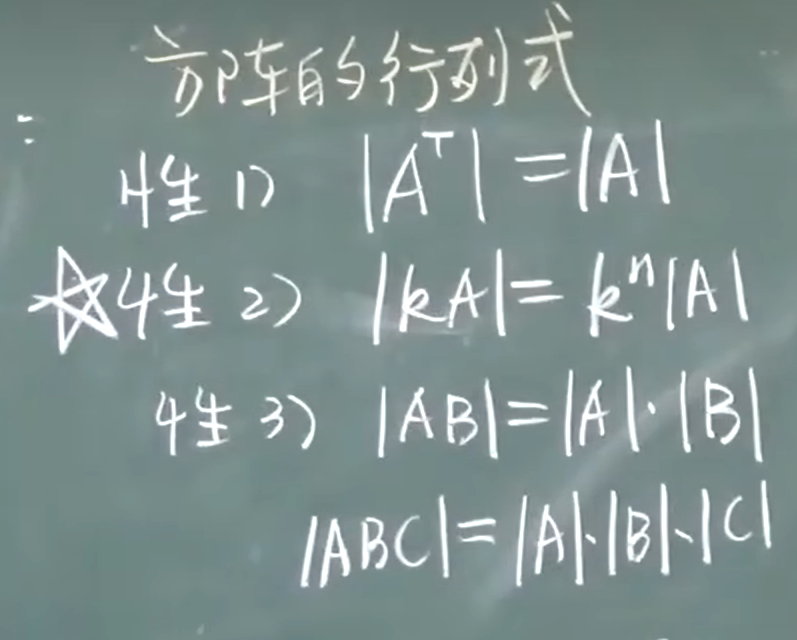 方阵的行列式
性1) |Aᵀ|=|A|
☆性2) |kA|=kⁿ|A|
性3) |AB|=|A|·|B|
|ABC|=|A|·|B|·|C|